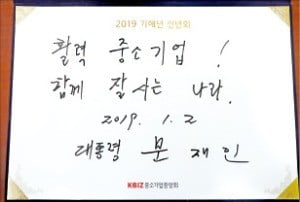 2019 기해년 신년회
활력 중소기업 !
함께 잘 사는 나라.
2019. 1. 2
대통령 문 재 인
KBIZ 중소기업중앙회